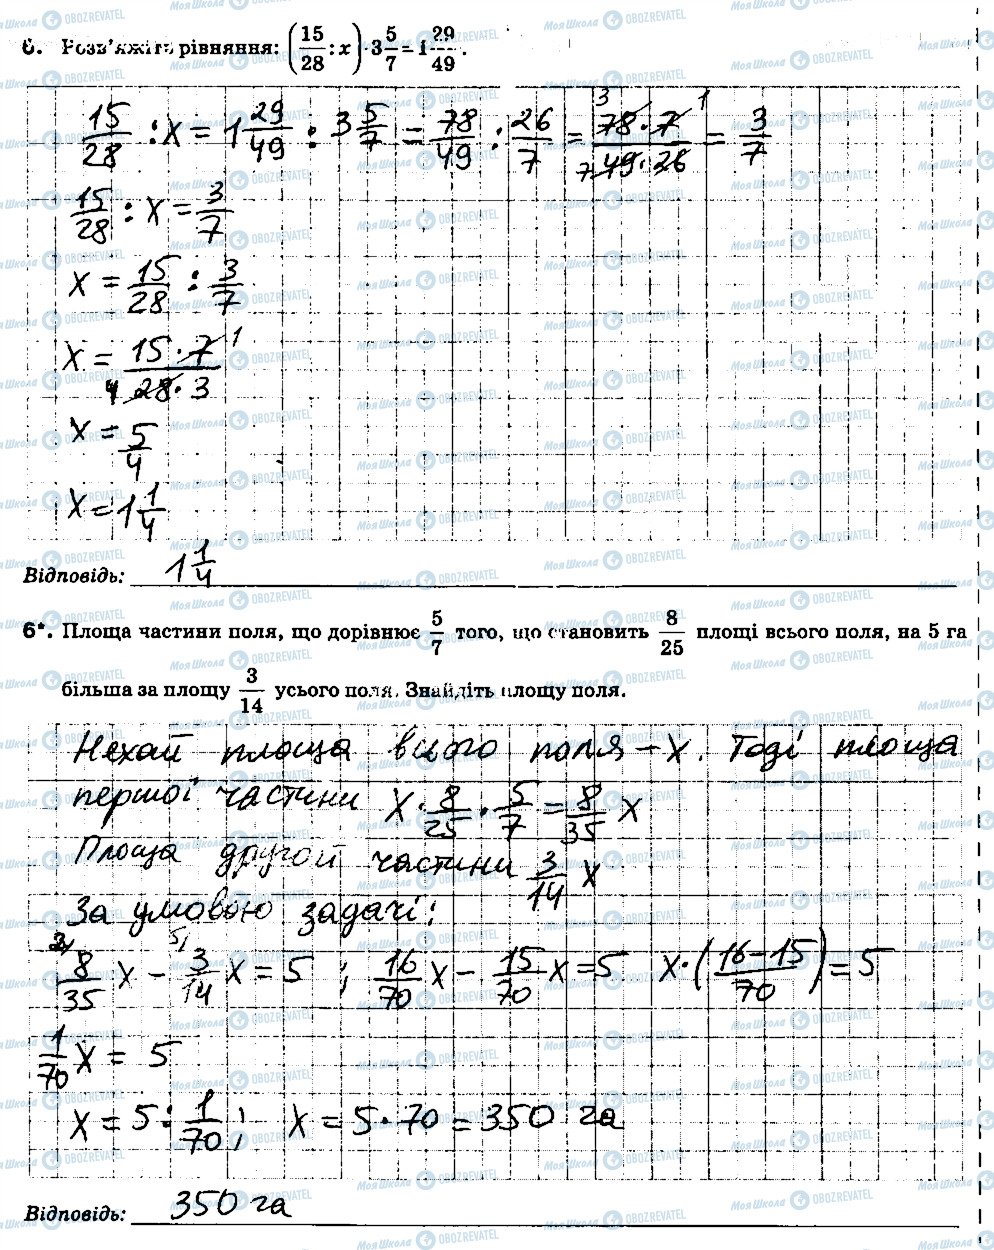 6. Розв'яжіть рівняння: (15/28 : x) · 3 5/7 = 1 29/49.
15/28 : x = 1 29/49 : 3 5/7 = 78/49 : 26/7 = 78 · 7 / 49 · 26 = 3/7
15/28 : x = 3/7
x = 15/28 : 3/7
x = 15 · 7 / 28 · 3
x = 5/4
x = 1 1/4
Відповідь: 1 1/4
6*. Площа частини поля, що дорівнює 5/7 того, що становить 8/25 площі всього поля, на 5 га
більша за площу 3/14 усього поля. Знайдіть площу поля.
Нехай площа всього поля – x. Тоді площа
першої частини x · 8/25 · 5/7 = 8/35 x
Площа другої частини 3/14 x
За умовою задачі:
8/35 x – 3/14 x = 5 ; 16/70 x – 15/70 x = 5 x · (16–15/70) = 5
1/70 x = 5
x = 5 : 1/70 ; x = 5 · 70 = 350 га
Відповідь: 350 га